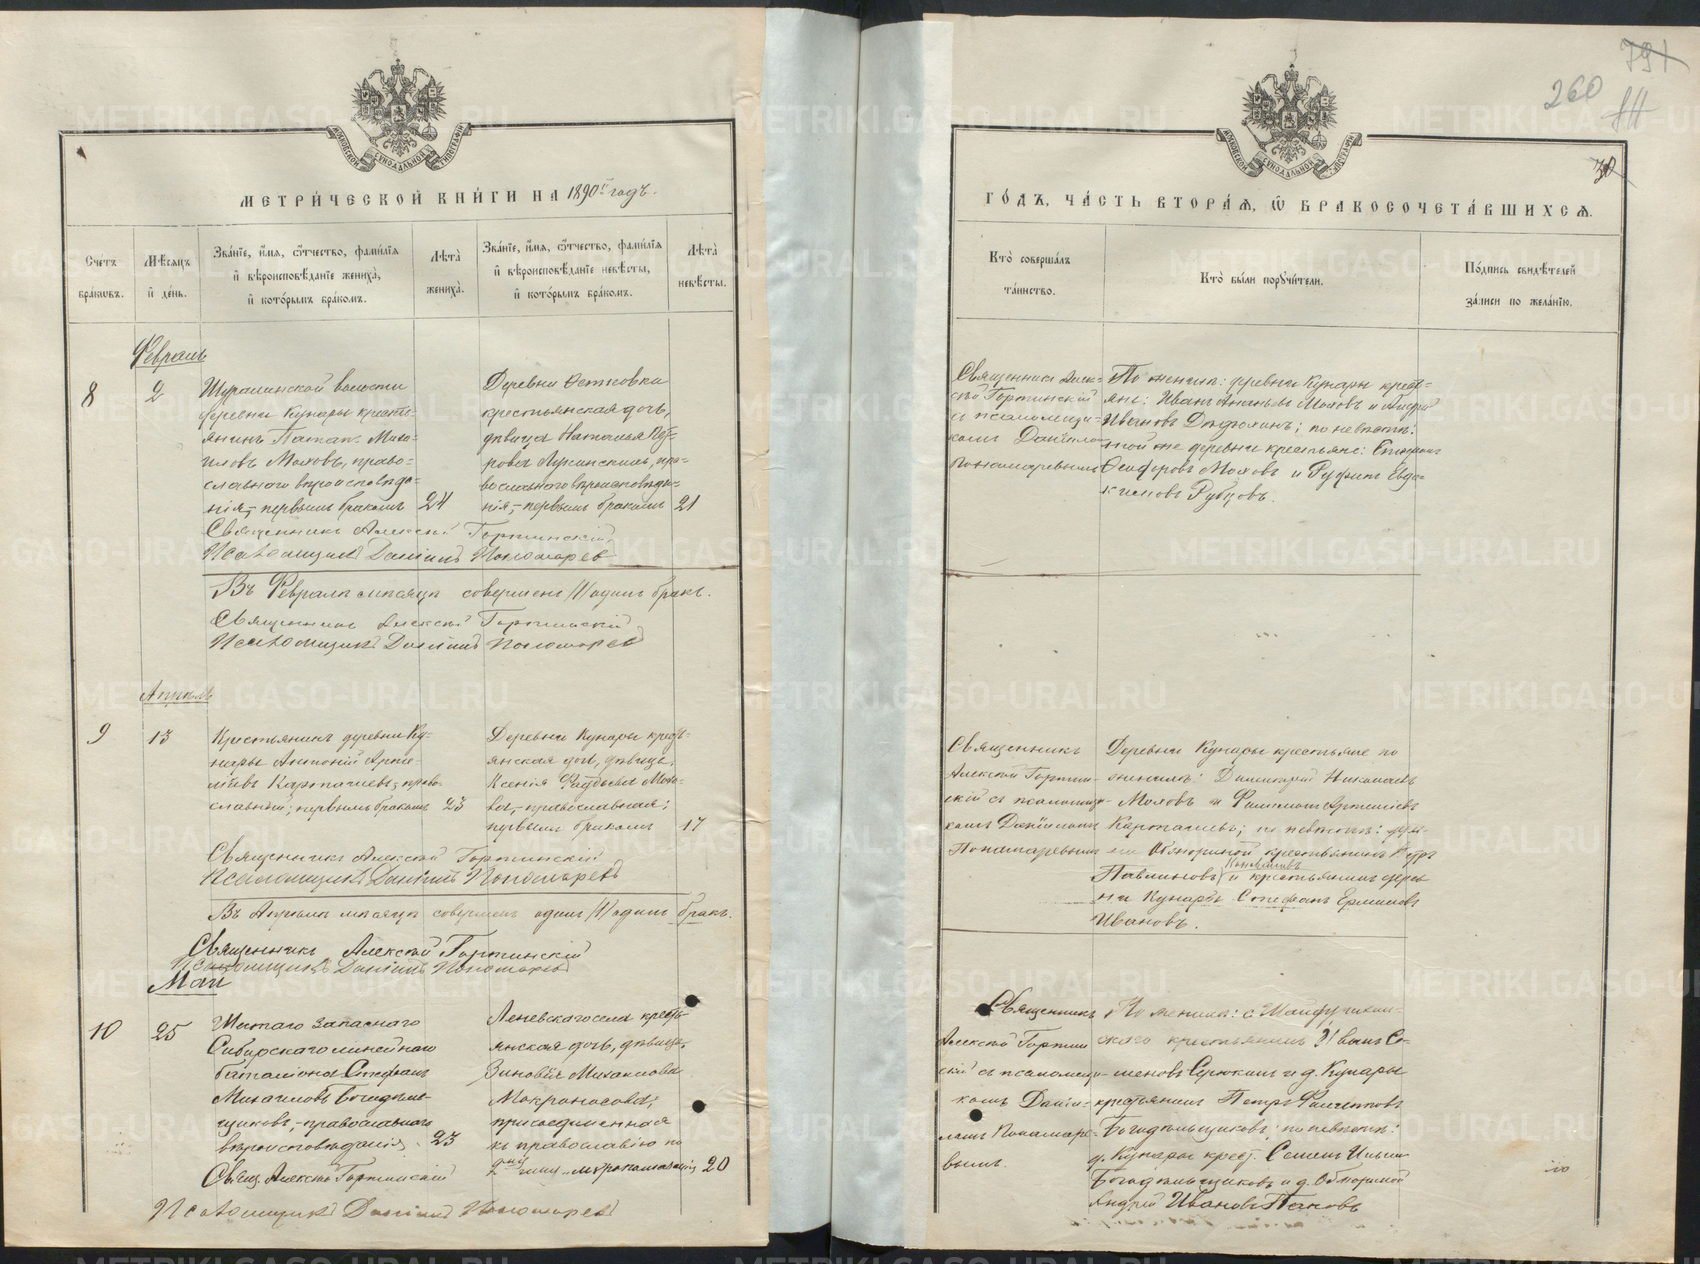 МЕТРИЧЕСКОЙ КНИГИ НА 1890й годъ.
Счетъ браковъ.
Мѣсяцъ и день.
Званіе, имя, отчество, фамилія и вѣроисповѣданіе жениха, и которымъ бракомъ.
Лѣта жениха.
Званіе, имя, отчество, фамилія и вѣроисповѣданіе невѣсты, и которымъ бракомъ.
Лѣта невѣсты.
Февраль
8
2
Шуралинской волости
деревни Кунары кресть-
янинъ
Моховъ, право-
славнаго вѣроисповѣда-
нія, первымъ бракомъ 24
Деревни Осиновки
крестьянская дочь,
дѣвица Наталья
православнаго вѣроисповѣда-
нія, первымъ бракомъ 21
Священникъ Алексѣй Гортинскій
Псаломщикъ Даніилъ Пономаревъ
Въ Февралѣ мѣсяцѣ совершенъ /1/ одинъ бракъ.
Священникъ Алексѣй Гортинскій
Псаломщикъ Даніилъ Пономаревъ
Апрѣль
9
13
Крестьянинъ деревни Ку-
нары Антоній Арте-
мьевъ Карпачевъ, право-
славный; первымъ бракомъ 23
Деревни Кунары кресть-
янская дочь, дѣвица,
Ксенія Мохо-
ва, православная;
первымъ бракомъ 17
Священникъ Алексѣй Гортинскій
Псаломщикъ Даніилъ Пономаревъ
Въ Апрѣлѣ мѣсяцѣ совершенъ одинъ /1/ одинъ бракъ.
Священникъ Алексѣй Гортинскій
Псаломщикъ Даніилъ Пономаревъ
Май
10
25
запаснаго
Сибирскаго линейнаго
баталіона Стефанъ
Михаиловъ Богадѣль-
щиковъ, православнаго
вѣроисповѣданія 23
Леневскаго села кресть-
янская дочь, дѣвица,
Зиновія Михаилова
Мокроносова;
присоединенная
къ православію
20
Свящ. Алексѣй Гортинскій
Псаломщикъ Даніилъ Пономаревъ
791
260
ГОДЪ, ЧАСТЬ ВТОРАЯ, Ѡ БРАКОСОЧЕТАВШИХСЯ.
Кто совершалъ таинство.
Кто были поручители.
Подпись свидѣтелей записи по желанію.
Священникъ Алек-
сѣй Гортинскій
и псаломщи-
комъ Даніиломъ
Пономаревымъ
По женихѣ: деревни Кунары кресть-
яне: Иванъ Ананьевъ Моховъ и Андрей
Ивановъ ; по невѣстѣ:
той же деревни крестьяне: Стефанъ
Ѳедоровъ Моховъ и Руфинъ Евдо-
кимовъ Рубцовъ.
Священникъ
Алексѣй Гортин-
скій съ псаломщи-
комъ Даніиломъ
Пономаревымъ
Деревни Кунары крестьяне по
женихѣ: Димитрій Николаевъ
Моховъ и Филимонъ Артемьевъ
Карпачевъ; по невѣстѣ: дерев-
ни Обжориной крестьянинъ Петръ
Павлиновъ Коноваловъ и крестьянинъ дерев-
ни Кунары Стефанъ Ермиловъ
Ивановъ.
Священникъ
Алексѣй Гортин-
скій съ псаломщи-
комъ Дані-
ломъ Пономаре-
вымъ.
По женихѣ: с. Шайдурихин-
скаго крестьянинъ Иванъ Се-
меновъ и д. Кунары
крестьянинъ Петръ Филиповъ
Богадѣльщиковъ; по невѣстѣ:
д. Кунары крест. Семенъ Ильинъ
Богадѣльщиковъ и д. Обжориной
Андрей Ивановъ Пановъ
METRIKI.GASO-URAL.RU